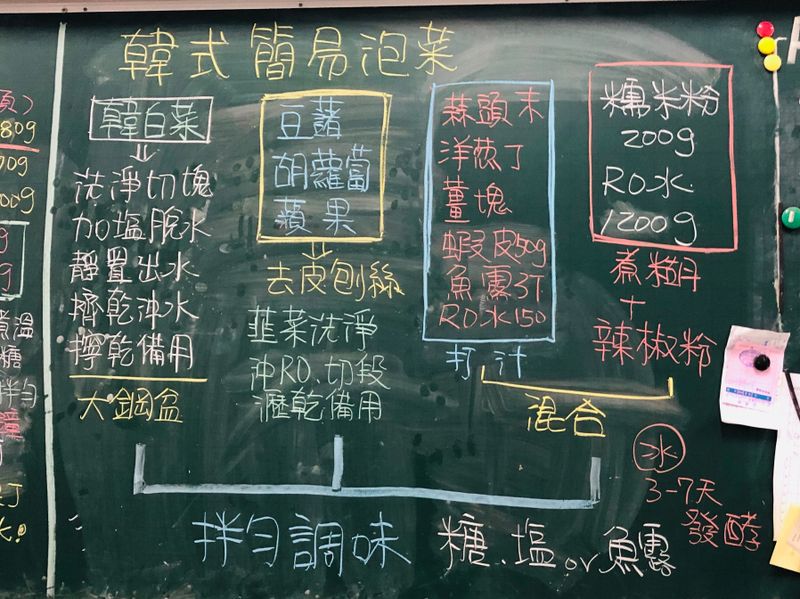 韓式簡易泡菜
韓白菜
洗淨切塊
加塩脫水
靜置出水
擠乾沖水
擰乾備用
大鋼盆
豆藷
胡蘿蔔
蘋果
去皮刨絲
韮菜洗淨
沖RO、切段
瀝乾備用
蒜頭末
洋蔥丁
薑塊
蝦皮50g
魚露3T
RO水150
打汁
糯米粉
200g
RO水
1200g
煮糊
+
辣椒粉
混合
冰
3-7天
發酵
拌勻調味 糖、塩 or 魚露
80g
70g
00g
g
g
煮溫
糖
拌勻
丁